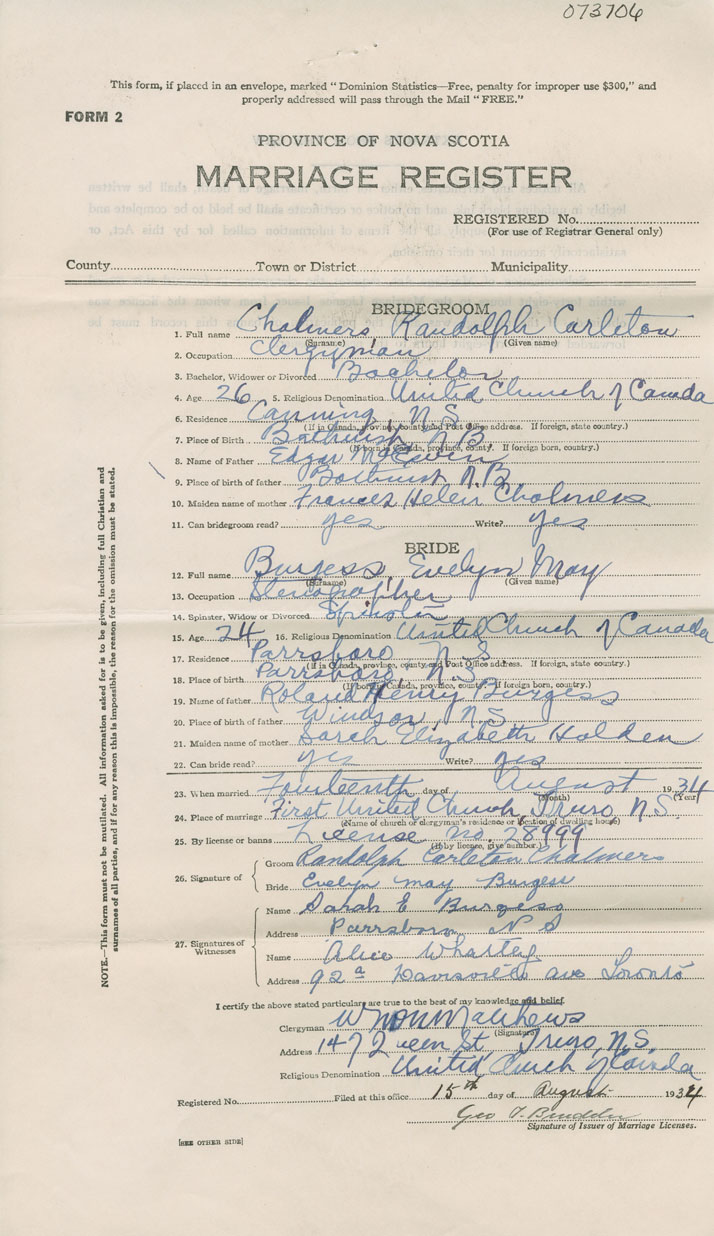 073706
This form, if placed in an envelope, marked "Dominion Statistics—Free, penalty for improper use $300," and
properly addressed will pass through the Mail "FREE."
FORM 2
PROVINCE OF NOVA SCOTIA
MARRIAGE REGISTER
REGISTERED No.
(For use of Registrar General only)
County Town or District Municipality
BRIDEGROOM
1. Full name Chalmers, Randolph Carleton
(Surname) (Given name)
2. Occupation Clergyman
3. Bachelor, Widower or Divorced Bachelor
4. Age 26 5. Religious Denomination United Church of Canada
6. Residence Canning, N.S.
(If in Canada, province, county and Post Office address. If foreign, state country.)
7. Place of Birth Bathurst, N.B.
(If born in Canada, province, county. If foreign born, country.)
8. Name of Father Edgar McEwen
9. Place of birth of father Bathurst N.B.
10. Maiden name of mother Frances Helen Chalmers
11. Can bridegroom read? yes Write? yes
BRIDE
12. Full name Burgess Evelyn May
(Surname) (Given name)
13. Occupation Stenographer
14. Spinster, Widow or Divorced Spinster
15. Age 24 16. Religious Denomination United Church of Canada
17. Residence Parrsboro N.S
(If in Canada, province, county and Post Office address. If foreign, state country.)
18. Place of birth Parrsboro N.S.
(If born in Canada, province, county. If foreign born, country.)
19. Name of father Roland Henry Burgess
20. Place of birth of father Windsor, N.S.
21. Maiden name of mother Sarah Elizabeth Holden
22. Can bride read? yes Write? yes
23. When married Fourteenth day of August 1934
(Month) (Year)
24. Place of marriage First United Church, Truro, N.S.
(Name of church or clergyman's residence or location of dwelling house)
25. By license or banns License No. 28999
(If by license, give number.)
26. Signature of
Groom Randolph Carleton Chalmers
Bride Evelyn May Burgess
27. Signatures of Witnesses
Name Sarah E Burgess
Address Parrsboro, N S
Name Alice
Address 92a Davisville ave Toronto
I certify the above stated particulars are true to the best of my knowledge and belief.
Clergyman Matthews
(Signature)
Address 147 Queen St Truro, N.S.
Religious Denomination United Church of Canada
Registered No. Filed at this office 15th day of August 1934
Geo
Signature of Issuer of Marriage Licenses.
[SEE OTHER SIDE]
NOTE.—This form must not be mutilated. All information asked for is to be given, including full Christian and
surnames of all parties, and if for any reason this is impossible, the reason for the omission must be stated.